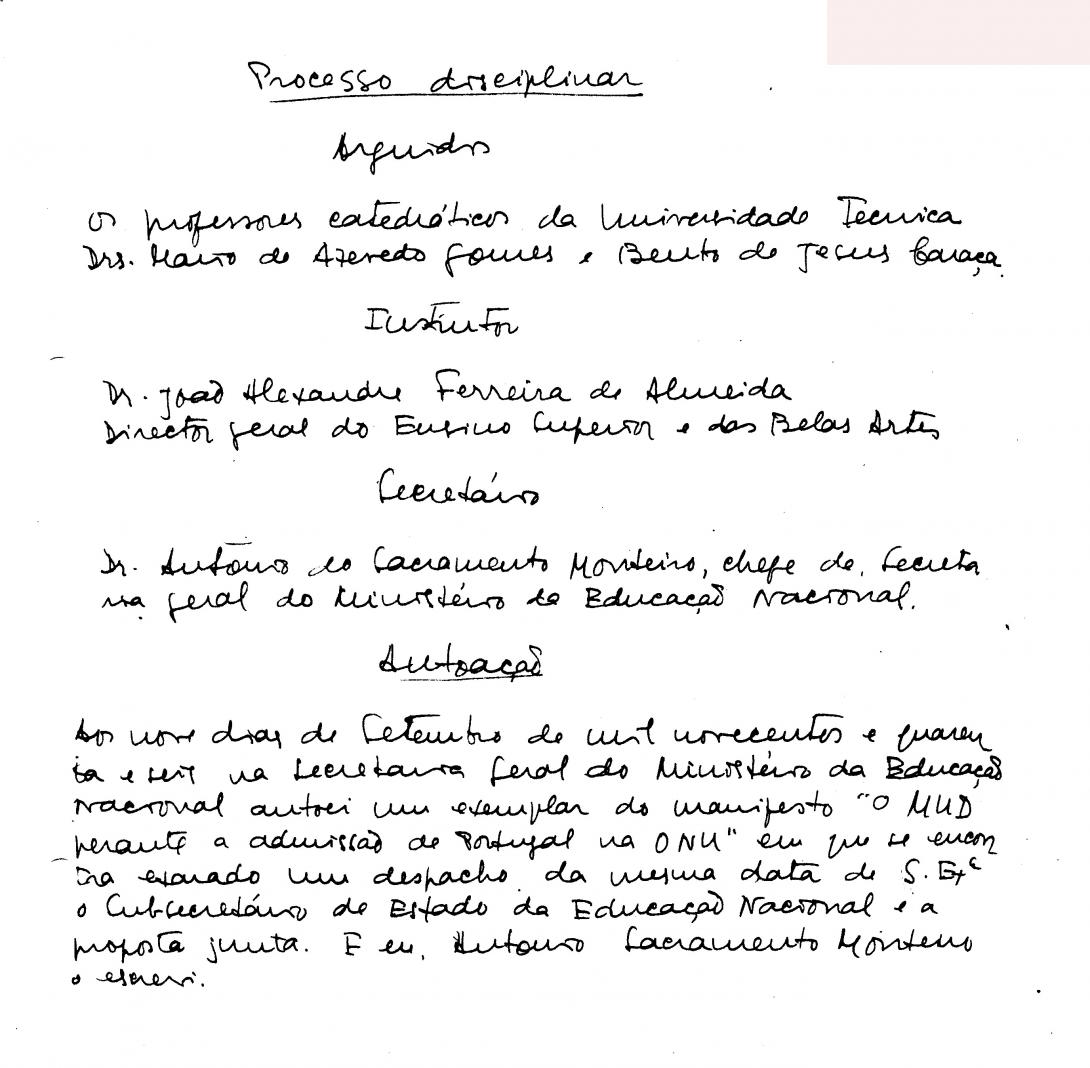 Processo disciplinar
Arguidos
Os professores catedráticos da Universidade Tecnica
Drs. Mario de Azevedo Gomes e Bento de Jesus Caraça
Instrutor
Dr. João Alexandre Ferreira de Almeida
Director geral do Ensino Superior e das Belas Artes
Secretário
Dr. António do Sacramento Monteiro, chefe da Secreta
ria geral do Ministério da Educação Nacional.
Autoação
Aos nove dias de Setembro de mil novecentos e quaren
ta e seis na Secretaria Geral do Ministério da Educação
Nacional autoei um exemplar do manifesto "O MUD
perante a admissão de Portugal na ONU" em que se encon
tra exarado um despacho da mesma data de S. Exª
o Subsecretário de Estado da Educação Nacional e a
proposta junta. E eu, António Sacramento Monteiro
o escrevi.